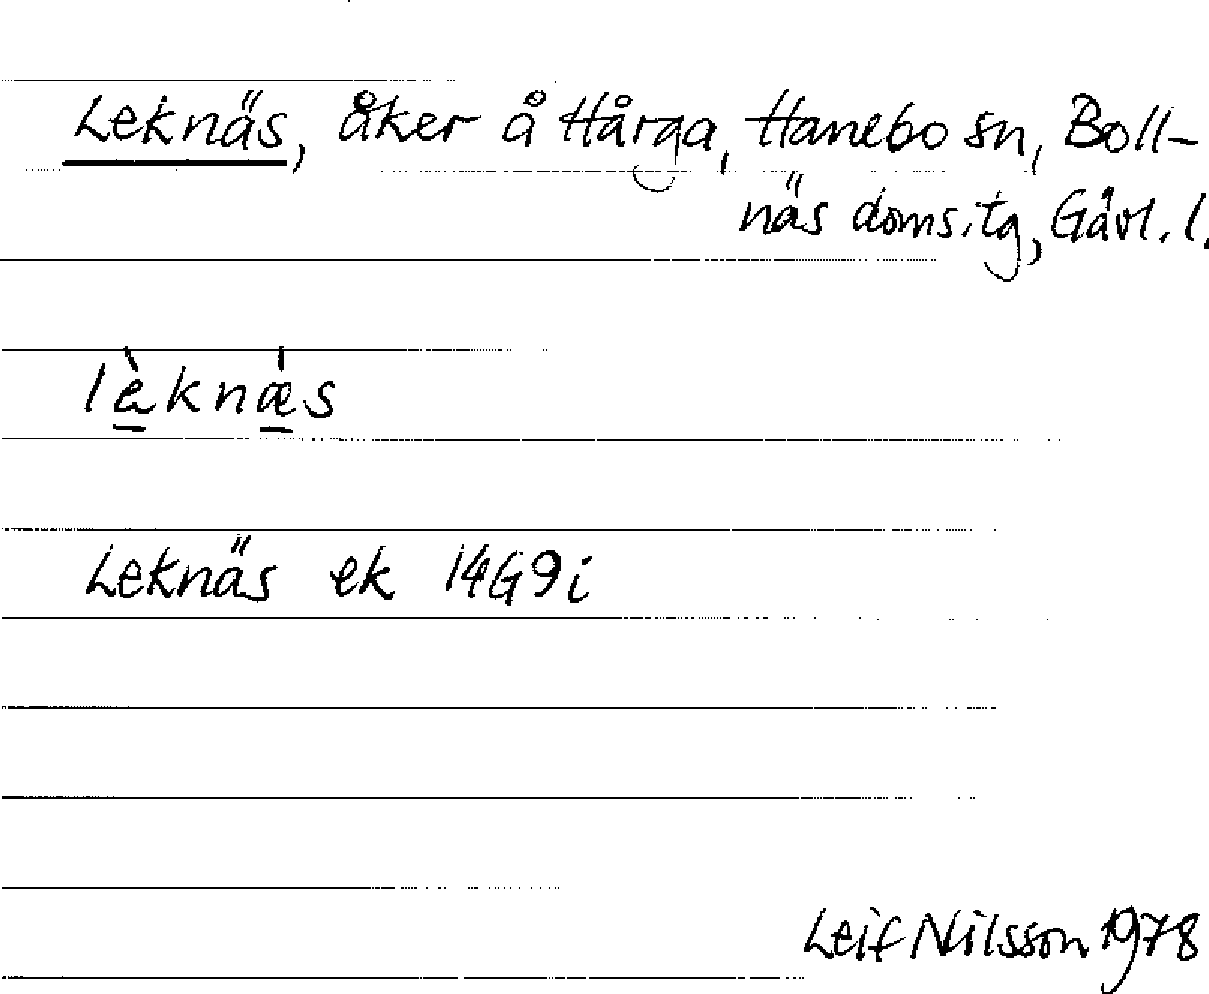 Leknäs, åker å Hårga, Hanebo sn, Boll-
näs doms.tg, Gävl. l.
lèknǽs
Leknäs ek 14G9i
Leif Nilsson 1978